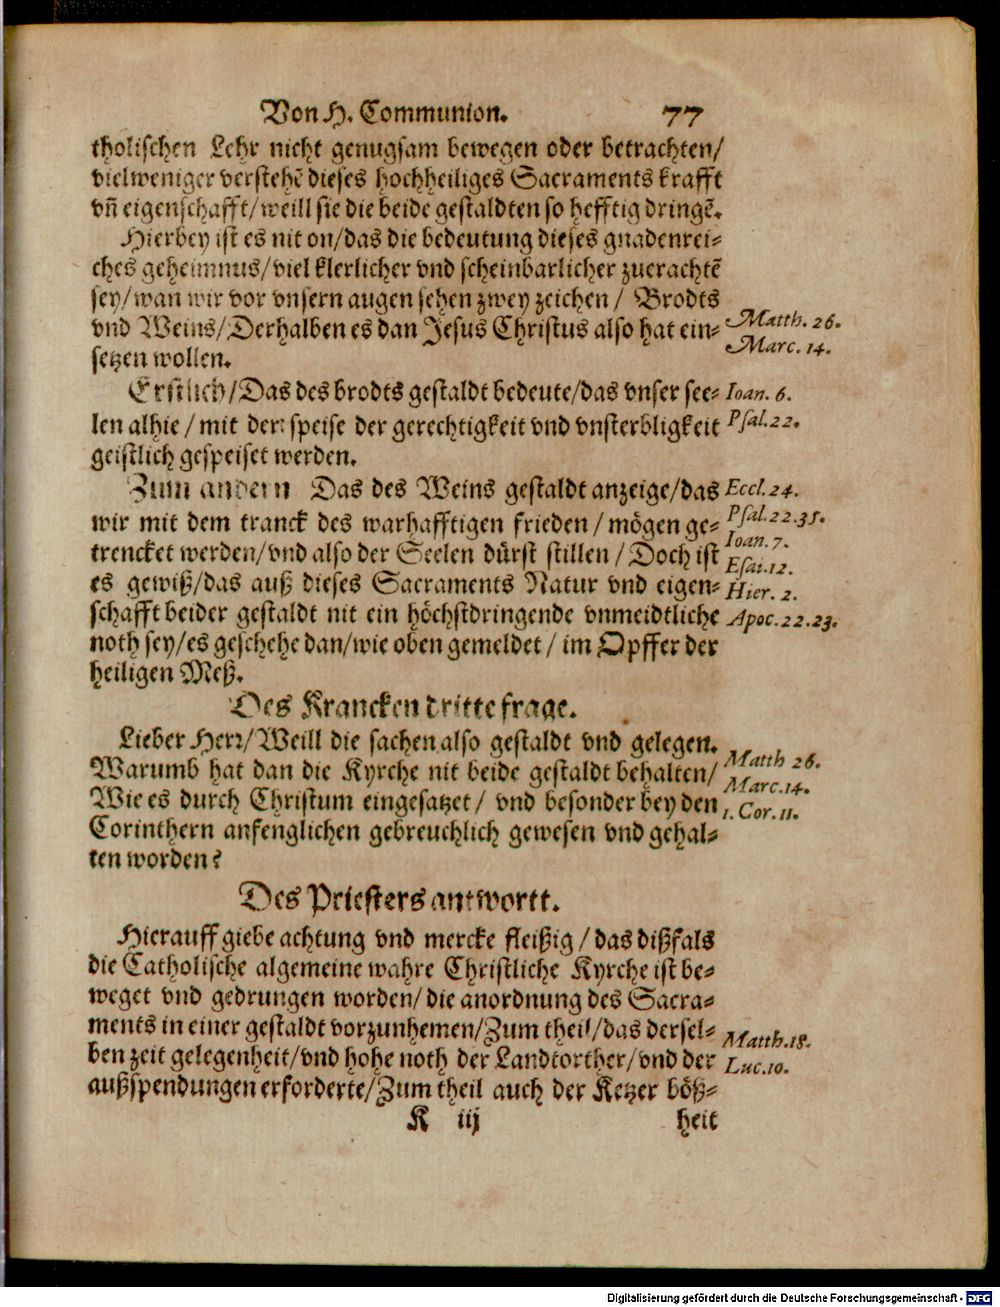 Von H. Communion. 77
tholischen Lehr nicht genugsam bewegen oder betrachten/
vielweniger verstehẽ dieses hochheiliges Sacraments krafft
vñ eigenschafft/weill sie die beide gestaldten so hefftig dringẽ.
Hierbey ist es nit on/das die bedeutung dieses gnadenrei⸗
ches geheimnus/viel klerlicher vnd scheinbarlicher zuerachtẽ
sey/wan wir vor vnsern augen sehen zwey zeichen / Brodts
vnd Weins/Derhalben es dan Jesus Christus also hat ein⸗
Matth. 26.
Marc. 14.
setzen wollen.
Erstlich/Das des brodts gestaldt bedeute/das vnser see⸗
Ioan. 6.
len alhie/mit der speise der gerechtigkeit vnd vnsterbligkeit
Psal.22.
geistlich gespeiset werden.
Zum andern Das des Weins gestaldt anzeige/das
Eccl. 24.
wir mit dem tranck des warhafftigen frieden/mögen ge⸗
Psal.22.35.
Ioan. 7.
trencket werden/vnd also der Seelen dürst stillen/Doch ist
Esai.12.
es gewiß/das auß dieses Sacraments Natur vnd eigen⸗
Hier. 2.
schafft beider gestaldt nit ein höchstdringende vnmeidtliche
Apoc. 22.23.
noth sey/es geschehe dan/wie oben gemeldet / im Opffer der
heiligen Meß.
Des Krancken dritte frage.
Lieber Herr/Weill die sachen also gestaldt vnd gelegen.
Warumb hat dan die Kyrche nit beide gestaldt behalten/
Matth 26.
Marc. 14.
Wie es durch Christum eingesatzet/ vnd besonder bey den
1. Cor. 11.
Corinthern anfenglichen gebreuchlich gewesen vnd gehal⸗
ten worden?
Des Priesters antwortt.
Hierauff giebe achtung vnd mercke fleißig/das dißfals
die Catholische algemeine wahre Christliche Kyrche ist be⸗
weget vnd gedrungen worden/die anordnung des Sacra⸗
ments in einer gestaldt vorzunhemen/Zum theil/das dersel⸗
Matth.18.
ben zeit gelegenheit/vnd hohe noth der Landtorther/vnd der
Luc.10.
außspendungen erforderte/Zum theil auch der Ketzer böß⸗
K iij heit
Digitalisierung gefördert durch die Deutsche Forschungsgemeinschaft - DFG